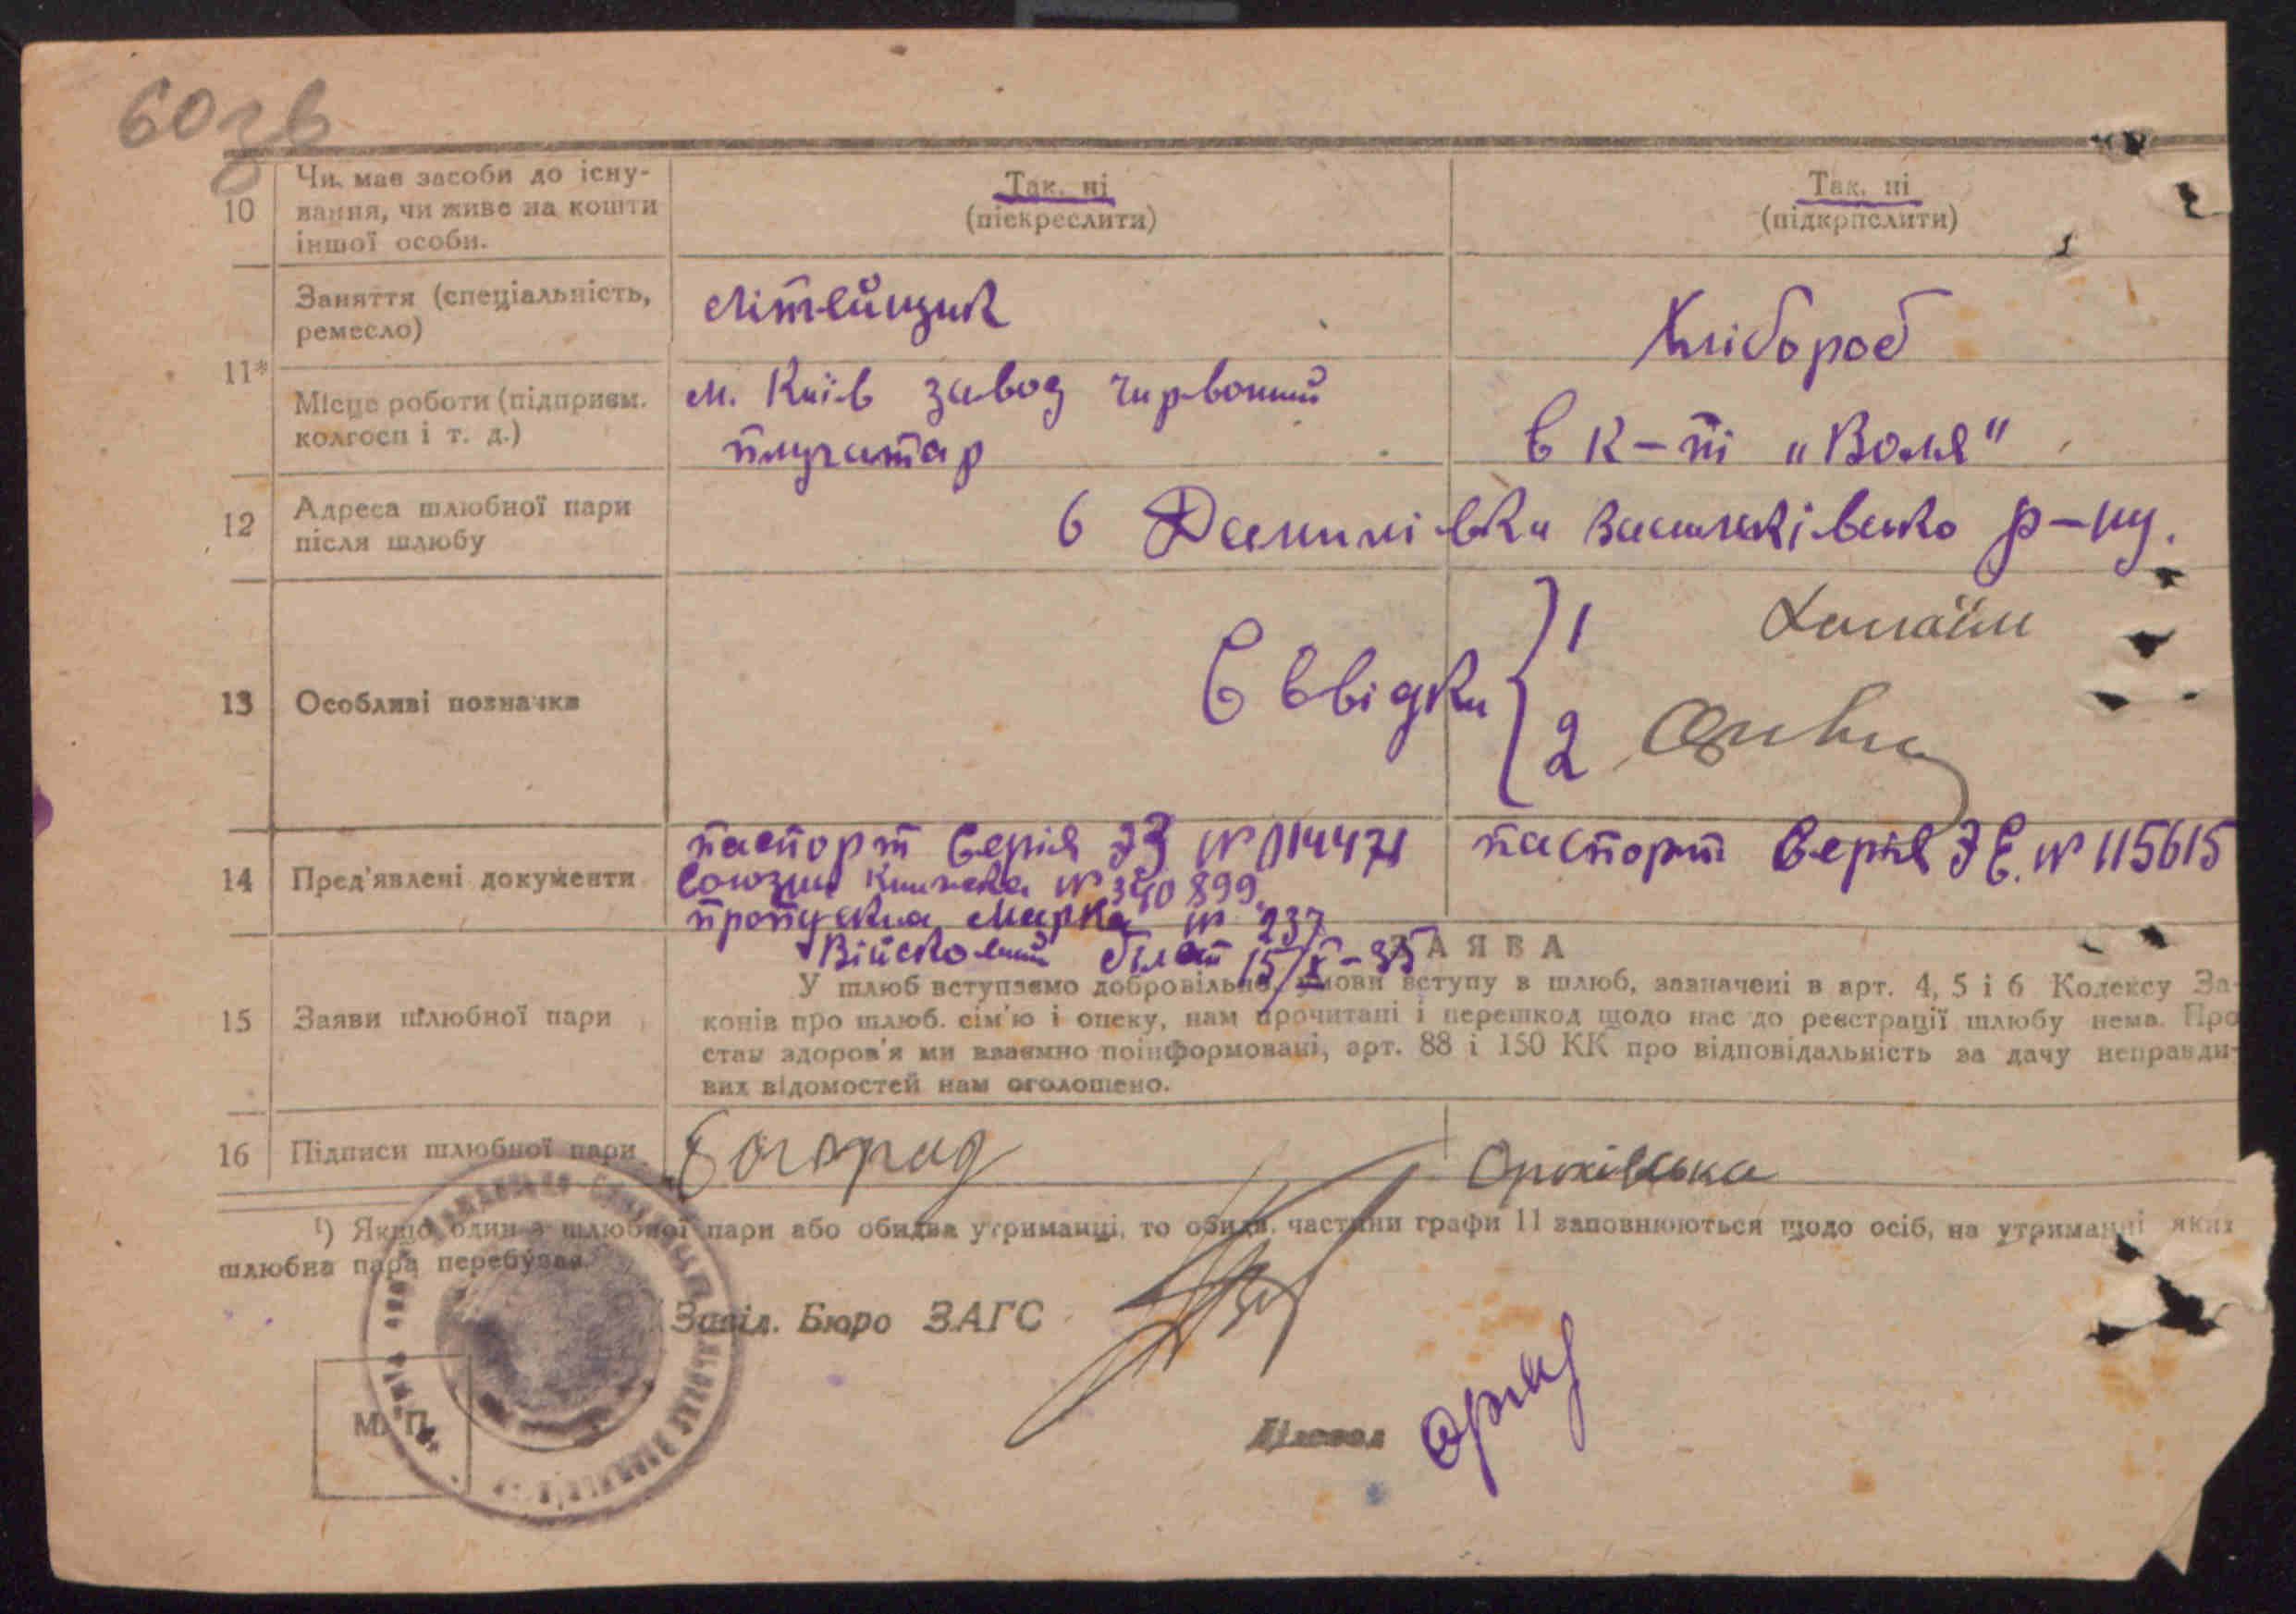 60зв
10 Чи має засоби до існу-
вання, чи живе на кошти
іншої особи.
Так, ні
(піекреслити)
Так, ні
(підкрпслити)
11*
Заняття (спеціальність,
ремесло)
Літейщик
Хлібороб
Місце роботи (підприєм.
колгосп і т. д.)
м. Київ завод Чирвоний
плугатар
в к-ті „Воля"
12 Адреса шлюбної пари
після шлюбу
в Данилівки Васильківсько р-ну.
13 Особливі позначки
Є свідки
1
2
14 Пред'явлені документи
паспорт Серія ЭЗ № 014471
Союзна Книжка № 340899
пропускна Марка № 237
Військовий білет 15/X-35
паспорт Серія ЭЄ. № 115615
ЗАЯВА
15 Заяви шлюбної пари
У шлюб вступаємо добровільно, умови вступу в шлюб, зазначені в арт. 4, 5 і 6 Кодексу За-
конів про шлюб. сім'ю і опеку, нам прочитані і перешкод щодо нас до реєстрації шлюбу нема. Про
стан здоров'я ми взаємно поінформовані, арт. 88 і 150 КК про відповідальність за дачу неправди-
вих відомостей нам оголошено.
16 Підписи шлюбної пари
Богорад
Оріхівська
¹) Якщо один з шлюбної пари або обидва утриманці, то обидв. частини графи 11 заповнюються щодо осіб, на утриманні яких
шлюбна пара перебуває.
Завід. Бюро ЗАГС
М. П.
Діловод